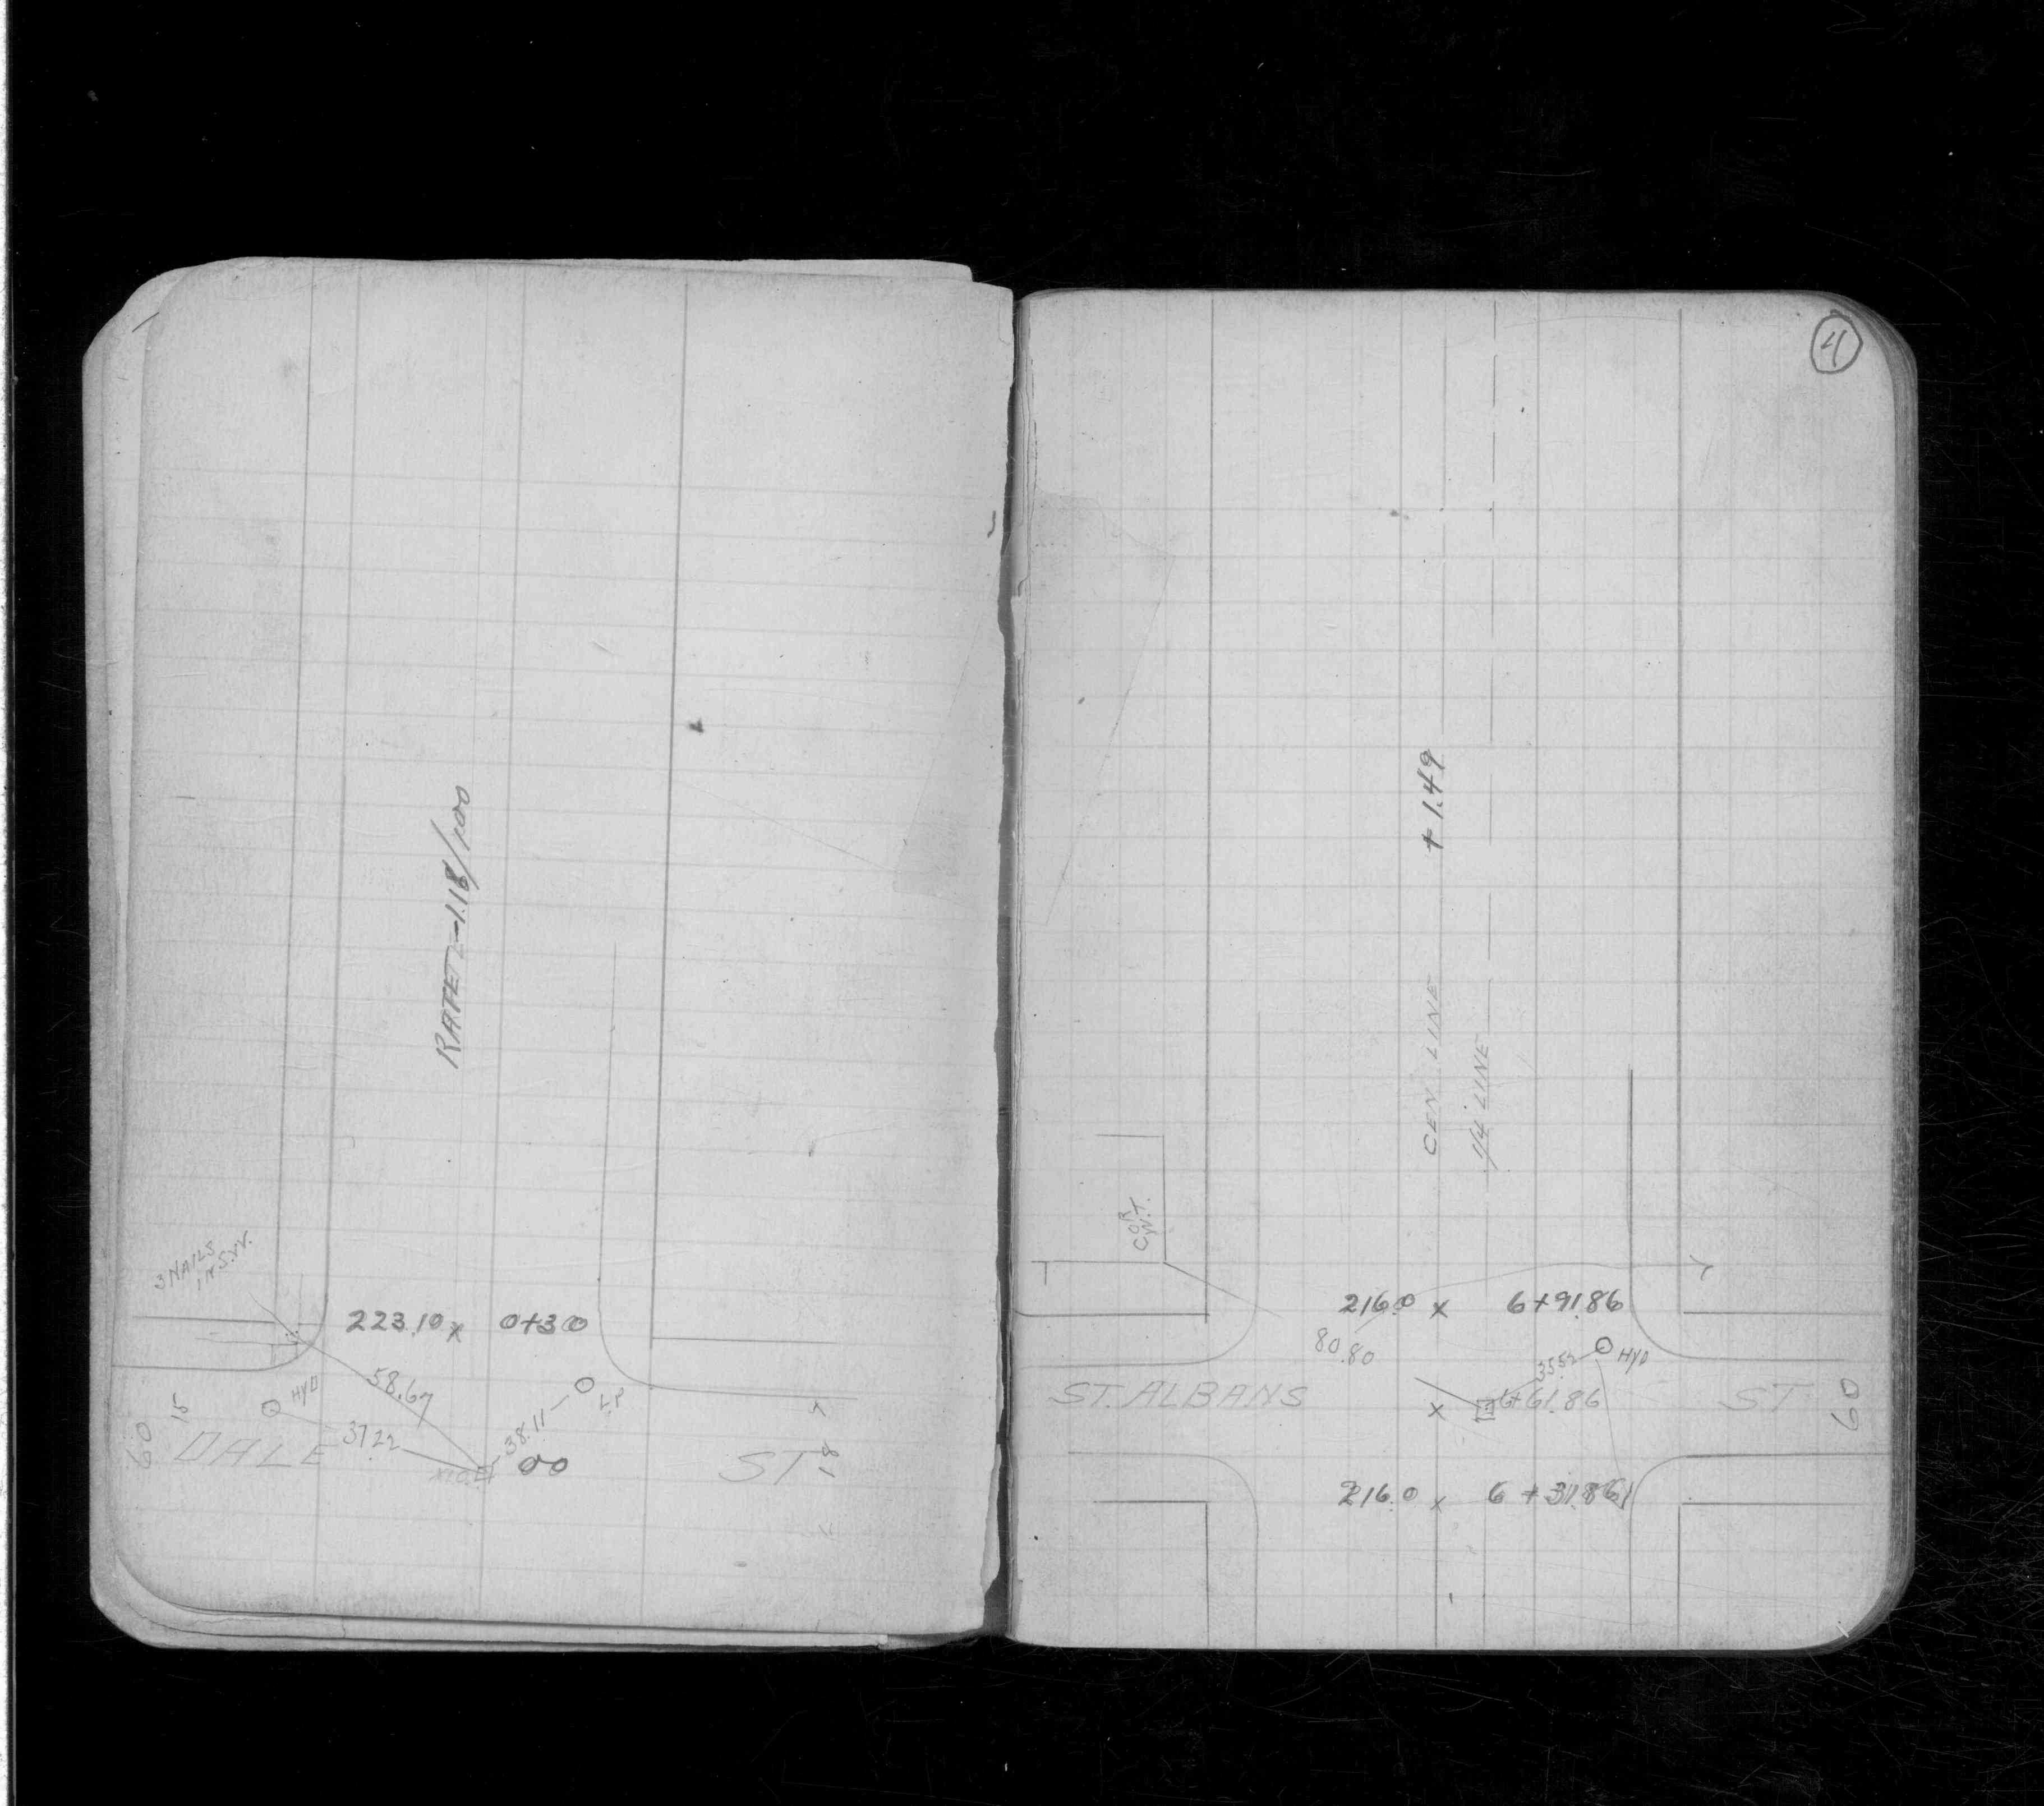 RATE -1.18/100
3 NAILS
IN S.W.
223.10 x 0+30
58.67
HYD
15
60
DALE ST
37.22
38.11
L.P.
00
18
4
+1.49
CEN LINE
1/4 LINE
COR
216.0 x 6+91.86
80.80
35.52
HYD
ST. ALBANS ST
x 6+61.86
60
216.0 x 6+31.86